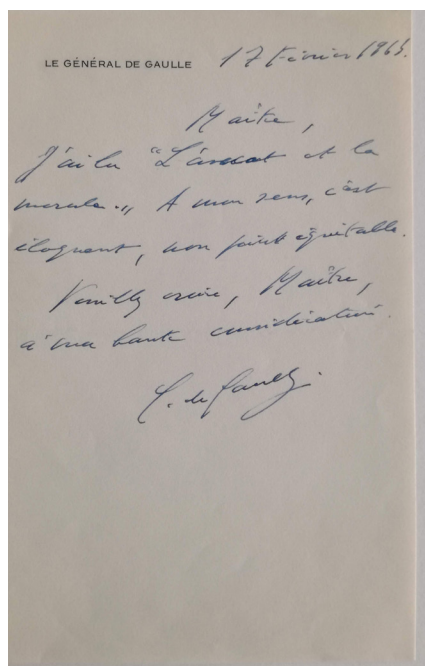 LE GÉNÉRAL DE GAULLE
17 février 196
Maître,
J'ai lu "L'avocat et la
morale". A mon sens, c'est
éloquent, non point équitable.
Veuillez croire, Maître,
à ma haute considération.
C. de Gaulle.